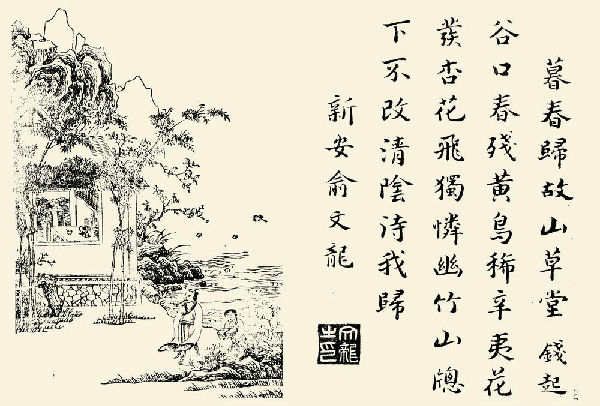 暮春歸故山草堂 錢起
谷口春残黄鳥稀辛夷花
杏花飛獨憐幽竹山牕
下不改清陰待我歸
新安俞文龍
文龍之印